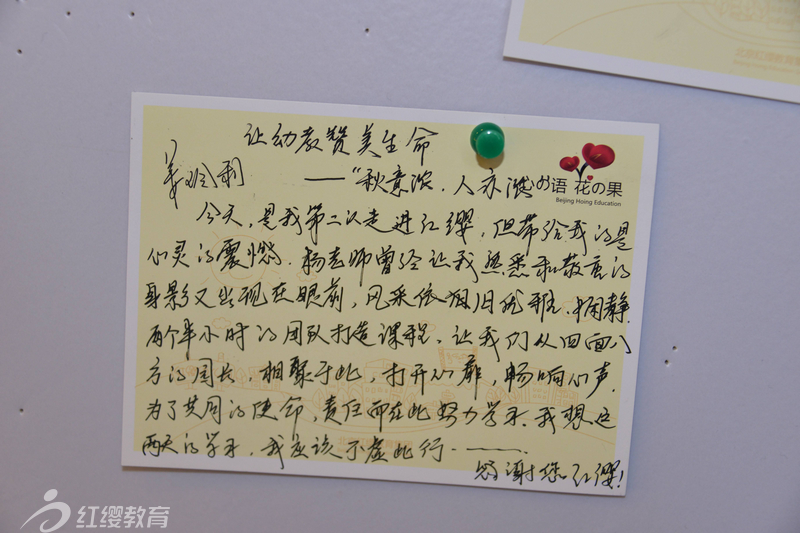 让幼教赞美生命
——"秋意浓，人亦浓
の语 花の果
Beijing Hoing Education
今天，是我第二次走进红缨，但带给我的是
心灵的震憾。杨老师曾经让我熟悉和敬重的
身影又出现在眼前，风采依旧优雅、娴静
两个半小时的团队打造课程，让我们从四面八
方的园长，相聚于此，打开心扉，畅响心声
为了共同的使命，责任而在此努力学习。我想这
两天的学习，我应该不虚此行……
感谢您红缨！
红缨教育